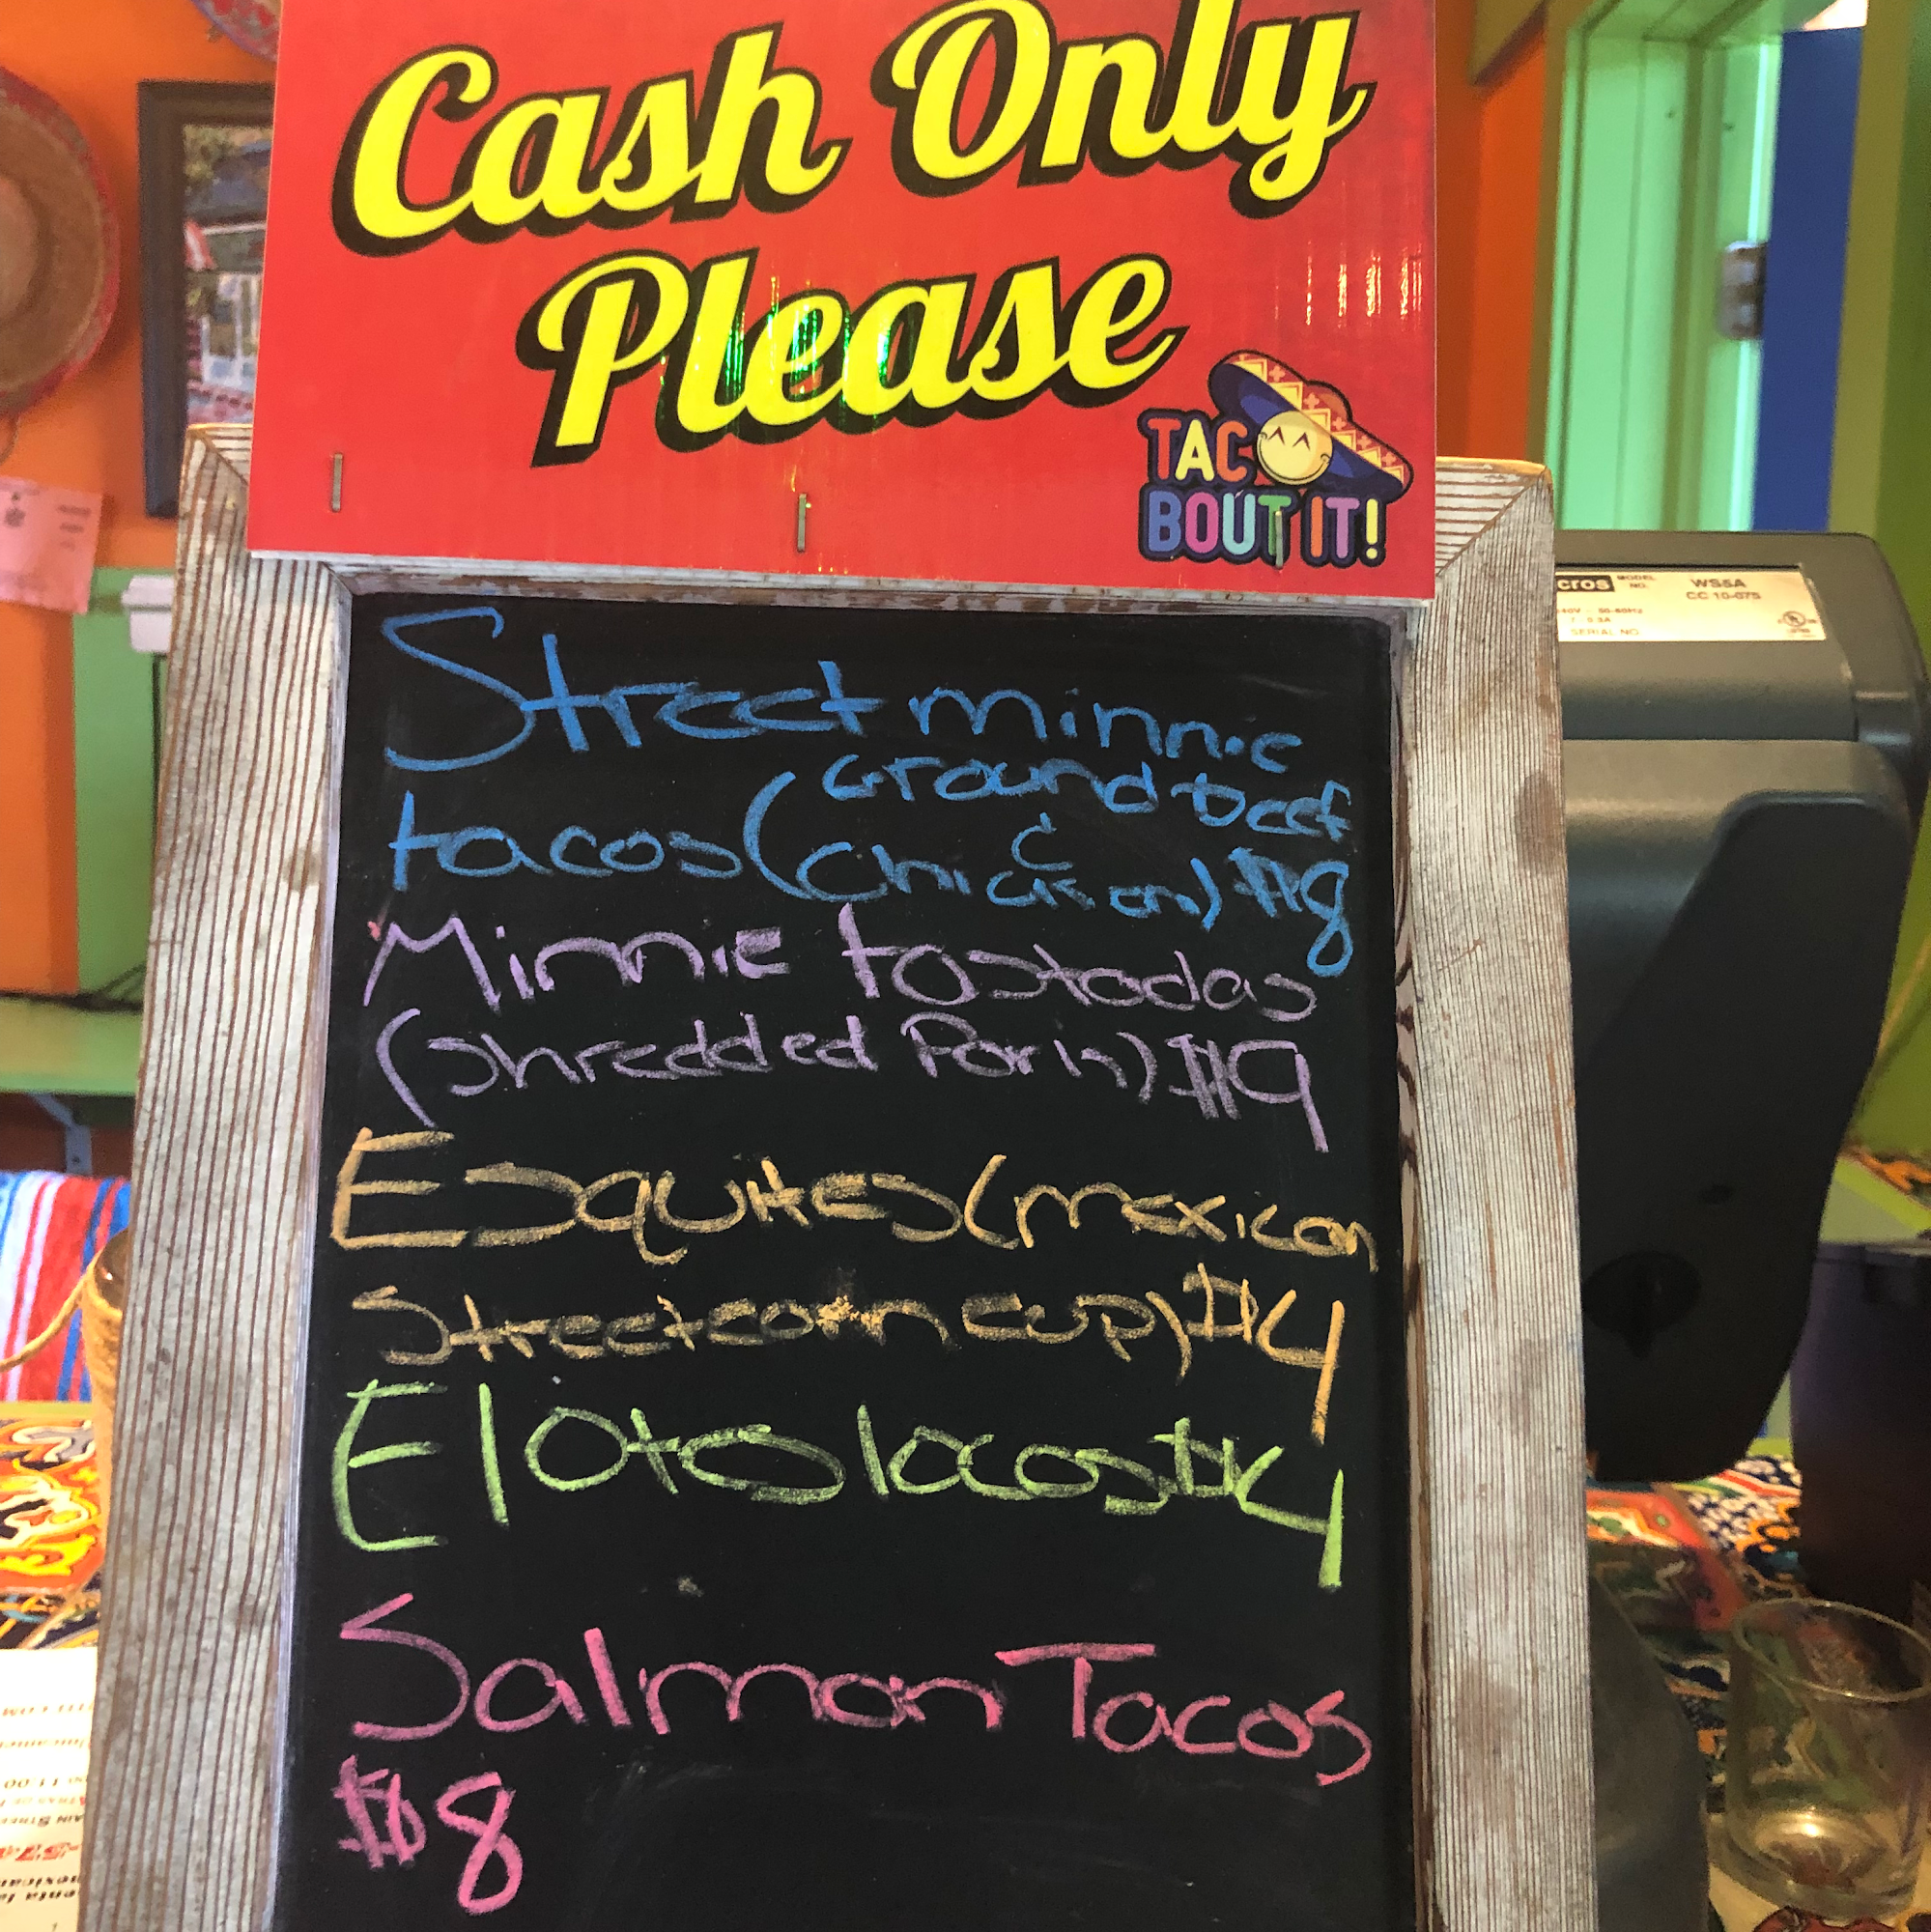 Cash Only
Please
TACO
BOUT IT!
Street minnie
tacos (Ground beef
&
Chicken) $8
Minnie tostadas
(shredded Pork) $9
Esquites (mexican
street corn cup) $4
Elotes locos $4
Salmon Tacos
$8
cros MODEL NO. WS5A
CC 10-07S
50-60Hz
SERIAL NO